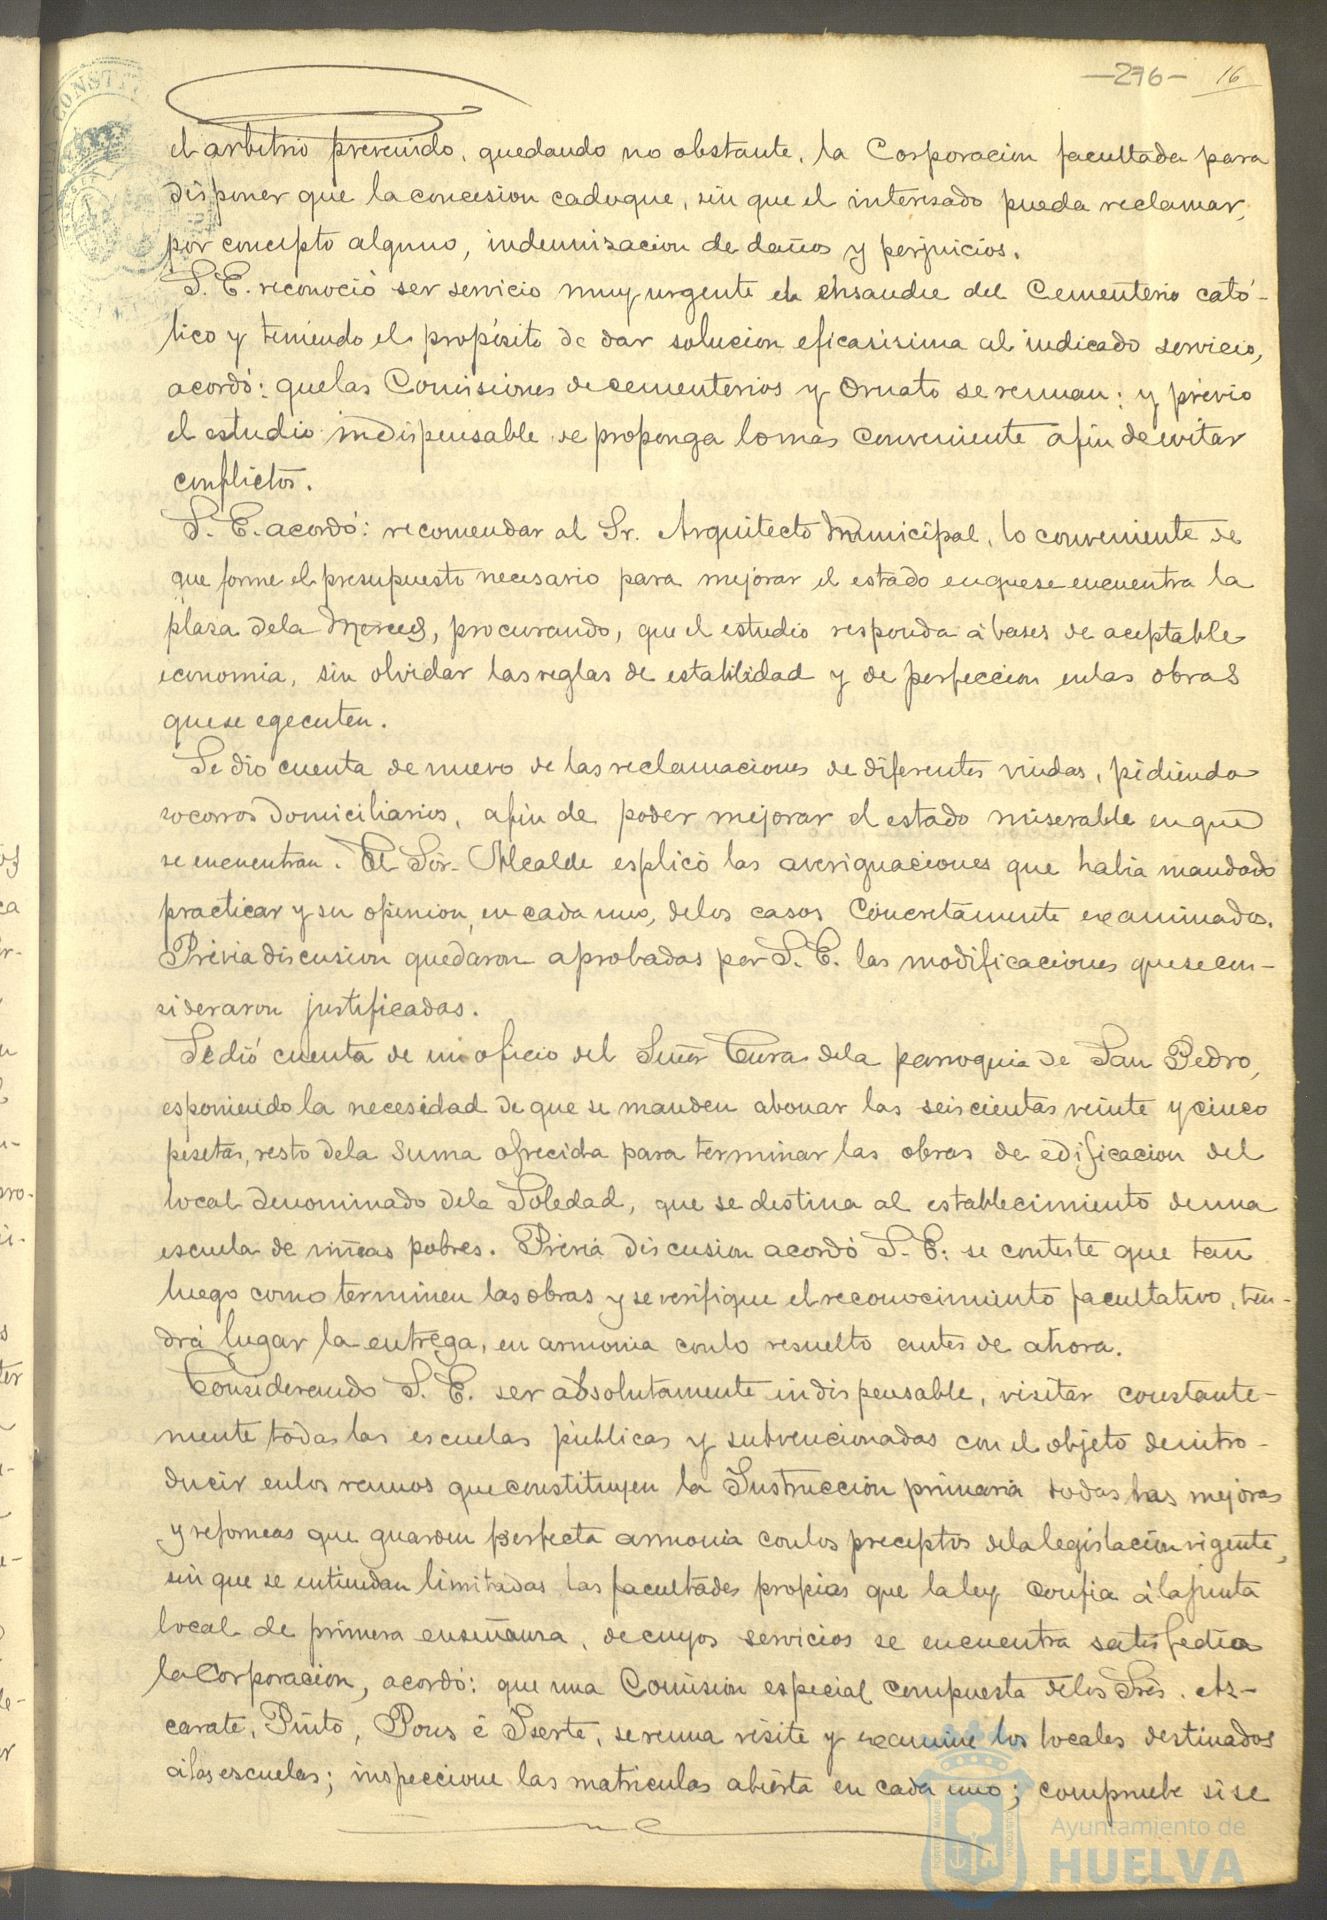 —276— 16
el arbitrio prevenido, quedando no obstante, la Corporacion facultada para
disponer que la concesion caduque, sin que el interesado pueda reclamar,
por concepto alguno, indemnisacion de daños y perjuicios.
S. E. reconoció ser servicio muy urgente el ensanche del Cementerio cató-
lico y teniendo el propósito de dar solucion eficasisima al indicado servicio,
acordó: que las Comisiones de cementerios y Ornato se reunan: y previo
el estudio indispensable se proponga lo mas conveniente afin de evitar
conflictos.
S. E. acordó: recomendar al Sr. Arquitecto Municipal, lo conveniente de
que forme el presupuesto necesario para mejorar el estado en que se encuentra la
plasa de la Merced, procurando, que el estudio responda á bases de aceptable
economia, sin olvidar las reglas de estabilidad y de perfeccion en las obras
que se egecuten.
Se dio cuenta de nuevo de las reclamaciones de diferentes viudas, pidiendo
socorros domiciliarios, afin de poder mejorar el estado miserable en que
se encuentran. El Sor. Alcalde esplicó las averiguaciones que habia mandado
practicar y su opinion, en cada uno, de los casos concretamente examinados.
Prévia discusion quedaron aprobadas por S. E. las modificaciones que se con-
sideraron justificadas.
Se dió cuenta de un oficio del Señor Cura de la parroquia de San Pedro,
esponiendo la necesidad de que se manden abonar las seiscientas veinte y cinco
pesetas, resto de la suma ofrecida para terminar las obras de edificacion del
local denominado de la Soledad, que se destina al establecimiento de una
escuela de niñas pobres. Prévia discusion acordó S. E: se conteste que tan
luego como terminen las obras y se verifique el reconocimiento facultativo, ten-
drá lugar la entrega, en armonia con lo resuelto antes de ahora.
Considerando S. E. ser absolutamente indispensable, visitar constante-
mente todas las escuelas públicas y subvencionadas con el objeto de intro-
ducir en los ramos que constituyen la Instruccion primaria todas las mejoras
y reformas que guarden perfecta armonia con los preceptos de la legislacion vigente,
sin que se entiendan limitadas las facultades propias que la ley confia á la junta
local de primera enseñansa, de cuyos servicios se encuentra satisfecha
la Corporacion, acordó: que una Comision especial compuesta de los Sres. Az-
carate, Pinto, Pons é Iserte, se reuna visite y examine los locales destinados
á las escuelas; inspeccione las matriculas abierta en cada uno; compruebe si se
Ayuntamiento de
HUELVA